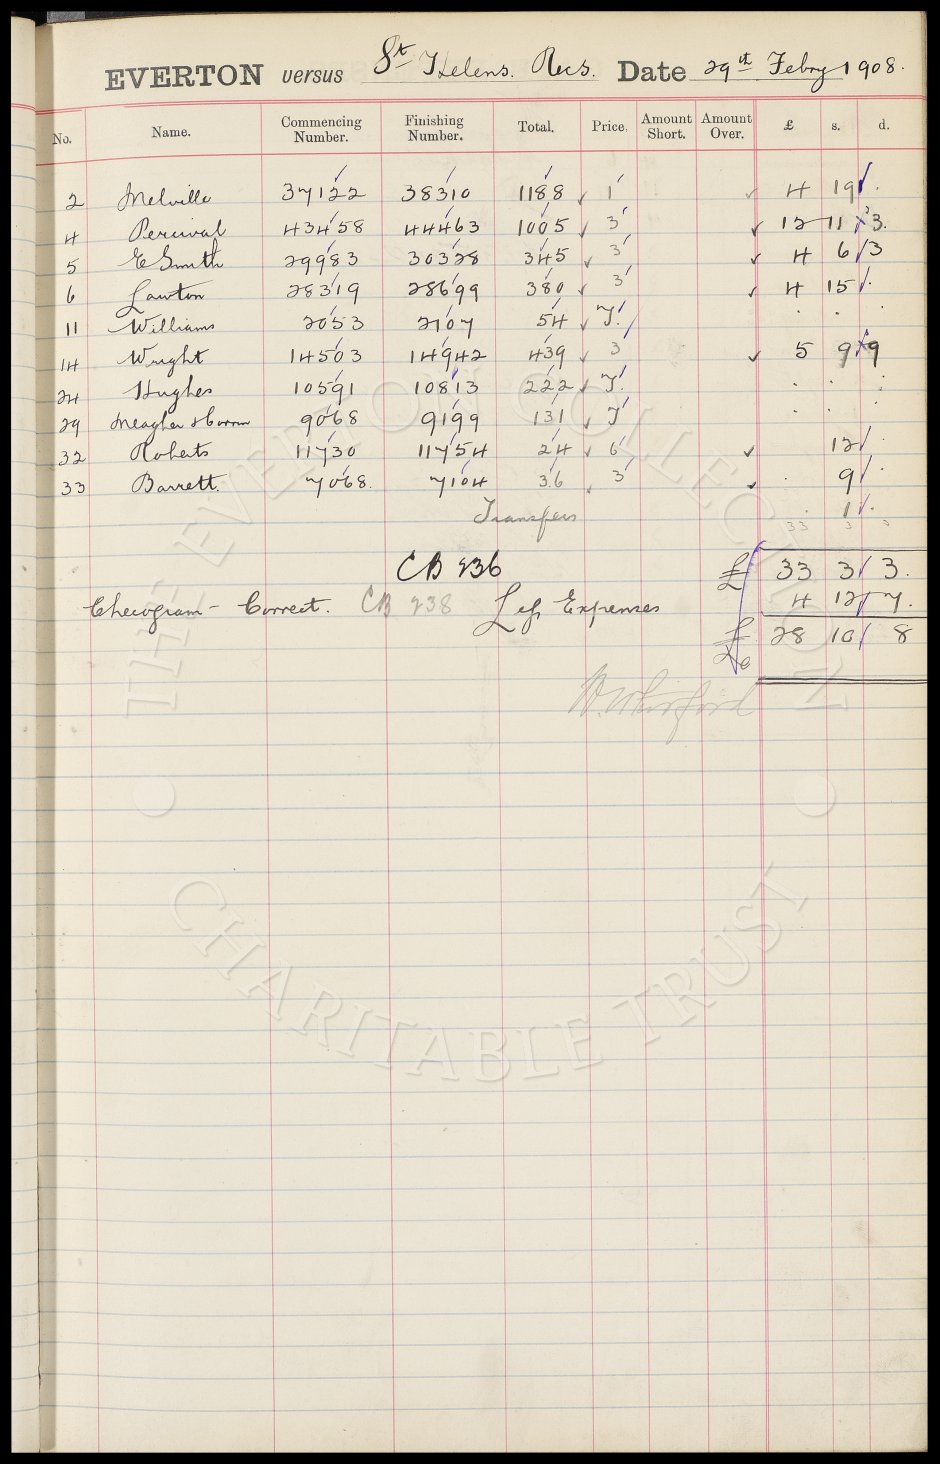 EVERTON versus St Helens. Recs. Date 29th Febry 1908.
No. Name. Commencing Number. Finishing Number. Total. Price. Amount Short. Amount Over. £ s. d.
2 Melville 37122 38310 1188 1 4 19 .
4 Percival 43458 44463 1005 3 12 11 3.
5 E Smith 29983 30328 345 3 4 6 3
6 Lawton 28319 28699 380 3 4 15 .
11 Williams 2053 2107 54 T. . . .
14 Wright 14503 14942 439 3 5 9 9
24 Hughes 10591 10813 222 T. . . .
29 Meagher & 9068 9199 131 T . . .
32 Roberts 11730 11754 24 6 12 .
33 Barrett. 7068. 7104 36 3 . 9 .
Transfers . 1 .
33 3 3
CB 236 £ 33 3 3.
Checogram - Correct. CB 238 Less Expenses 4 12 7.
£ 28 10 8
THE EVERTON COLLECTION
CHARITABLE TRUST